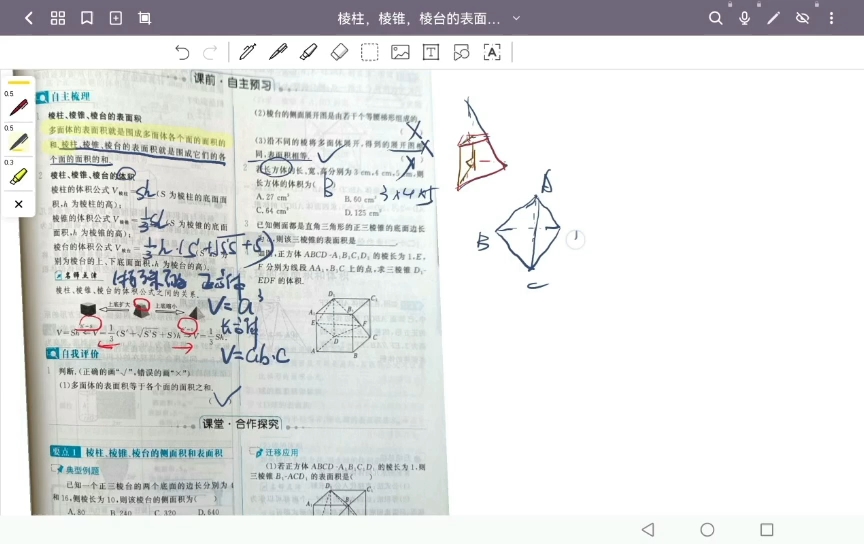 棱柱，棱锥，棱台的表面...
0.5
0.5
0.3
课前·自主预习
自主梳理
棱柱、棱锥、棱台的表面积
多面体的表面积就是围成多面体各个面的面积的
和.棱柱、棱锥、棱台的表面积就是围成它们的各
个面的面积的和.
2 棱柱、棱锥、棱台的体积
棱柱的体积公式V棱柱= sh (S为棱柱的底面面
积,h为棱柱的高);
棱锥的体积公式V棱锥= S为棱锥的底面
面积,h为棱锥的高);
棱台的体积公式V棱台= 1/3 h·(S'+√S'S+S)
别为棱台的上、下底面面积,h为棱台的高).
名师点津
棱柱、棱锥、棱台的体积公式之间的关系.
上底扩大
上底缩小
V=Sh
V=1/3(S'+√S'S+S)h
V=1/3Sh.
V=a³
V=ab·c
自我评价
1 判断.(正确的画“√”,错误的画“×”)
(1)多面体的表面积等于各个面的面积之和.
(2)棱台的侧面展开图是由若干个等腰梯形组成的.
(3)沿不同的棱将多面体展开,得到的展开图相
同,表面积相等.
2 若长方体的长、宽、高分别为3 cm,4 cm,5 cm,则
长方体的体积为( B
A. 27 cm³
B. 60 cm³
C. 64 cm³
D. 125 cm³
3×4×5
3 已知侧面都是直角三角形的正三棱锥的底面边长
则该三棱锥的表面积是
正方体ABCD-A₁B₁C₁D₁的棱长为1,E,
F分别为线段AA₁,B₁C上的点,求三棱锥D₁-
EDF的体积.
D₁
C₁
A₁
E
F
D
C
A
B
A
B
C
课堂·合作探究
要点1 棱柱、棱锥、棱台的侧面积和表面积
典型例题
已知一个正三棱台的两个底面的边长分别为4
和16,侧棱长为10,则该棱台的侧面积为( )
A. 80 B. 240 C. 320 D. 640
迁移应用
(1)若正方体ABCD-A₁B₁C₁D₁的棱长为1,则
三棱锥B₁-ACD₁的表面积是( )
D₁
A₁